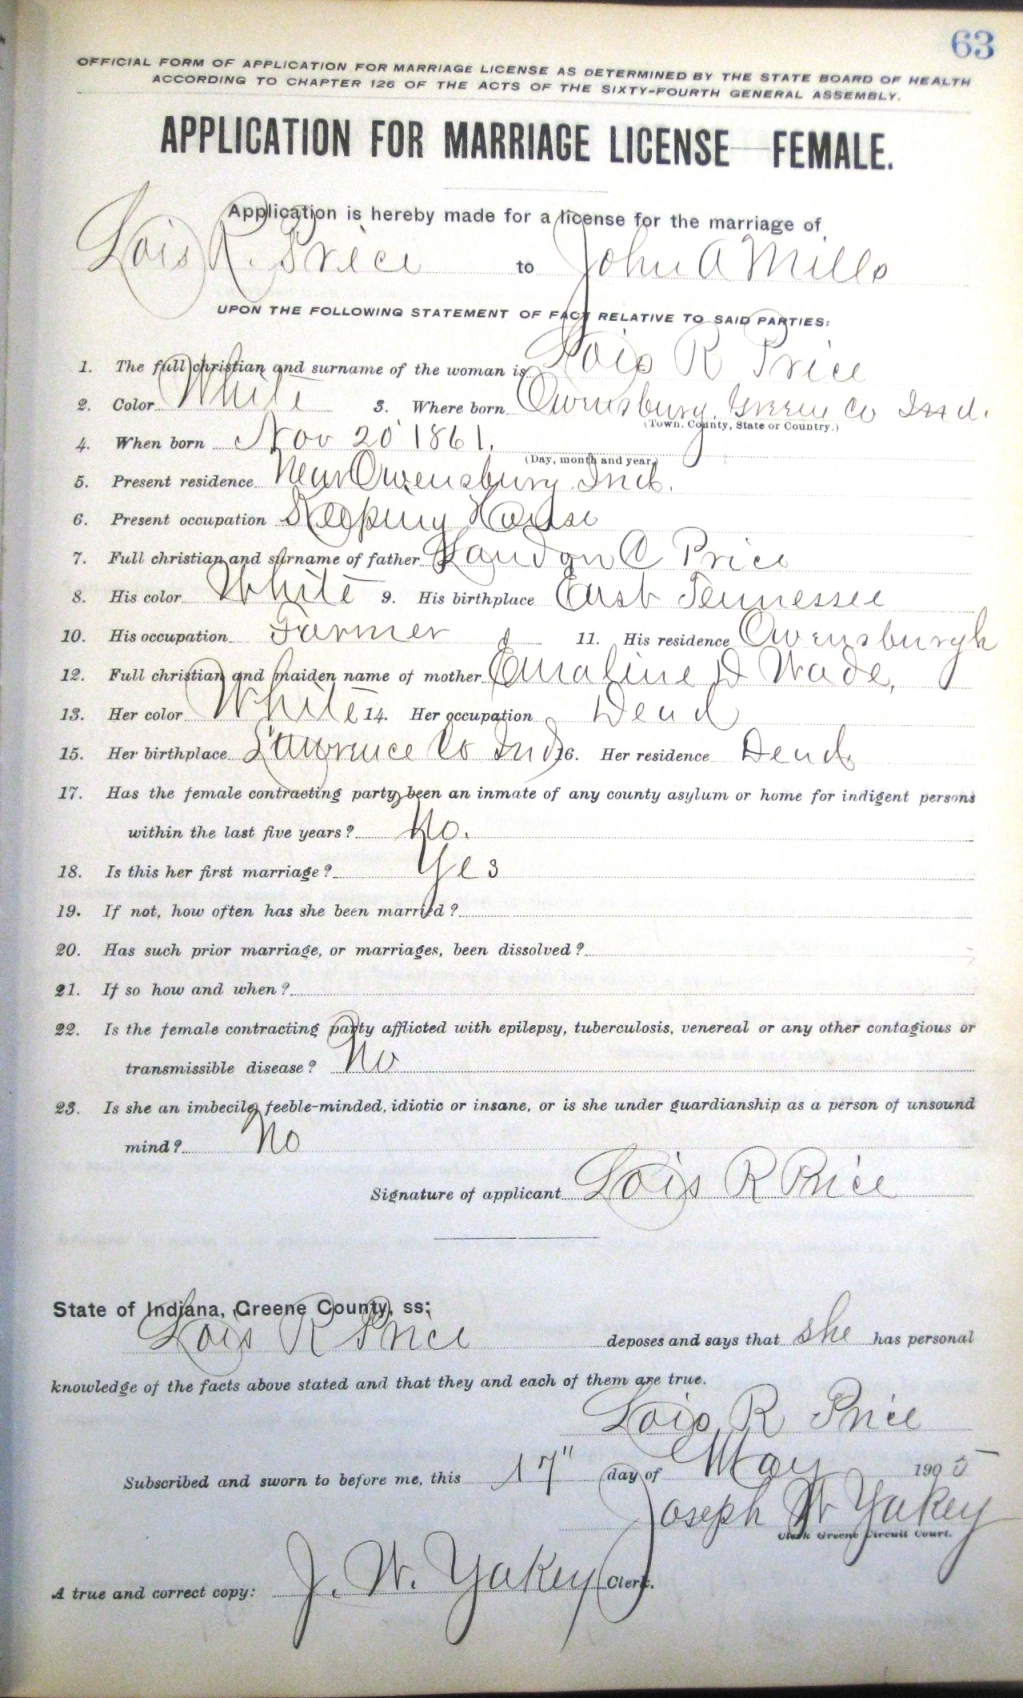 63
OFFICIAL FORM OF APPLICATION FOR MARRIAGE LICENSE AS DETERMINED BY THE STATE BOARD OF HEALTH
ACCORDING TO CHAPTER 126 OF THE ACTS OF THE SIXTY-FOURTH GENERAL ASSEMBLY.
APPLICATION FOR MARRIAGE LICENSE—FEMALE.
Application is hereby made for a license for the marriage of
Lois R. Price to John A Mills
UPON THE FOLLOWING STATEMENT OF FACT RELATIVE TO SAID PARTIES:
1. The full christian and surname of the woman is Lois R Price
2. Color White 3. Where born Owensburg, Greene Co Ind.
(Town, County, State or Country.)
4. When born Nov 20 1861.
(Day, month and year.)
5. Present residence Near Owensburg Ind.
6. Present occupation Keeping House
7. Full christian and surname of father Landon C Price
8. His color White 9. His birthplace East Tennessee
10. His occupation Farmer 11. His residence Owensburgh
12. Full christian and maiden name of mother Emaline D Wade,
13. Her color White 14. Her occupation Dead
15. Her birthplace Lawrence Co Ind 16. Her residence Dead
17. Has the female contracting party been an inmate of any county asylum or home for indigent persons
within the last five years? No.
18. Is this her first marriage? Yes
19. If not, how often has she been married?
20. Has such prior marriage, or marriages, been dissolved?
21. If so how and when?
22. Is the female contracting party afflicted with epilepsy, tuberculosis, venereal or any other contagious or
transmissible disease? No
23. Is she an imbecile, feeble-minded, idiotic or insane, or is she under guardianship as a person of unsound
mind? No
Signature of applicant Lois R Price
State of Indiana, Greene County, ss:
Lois R Price deposes and says that she has personal
knowledge of the facts above stated and that they and each of them are true.
Lois R Price
Subscribed and sworn to before me, this 17" day of May 1905
Joseph W Yakey
Clerk Greene Circuit Court.
A true and correct copy: J. W. Yakey Clerk.